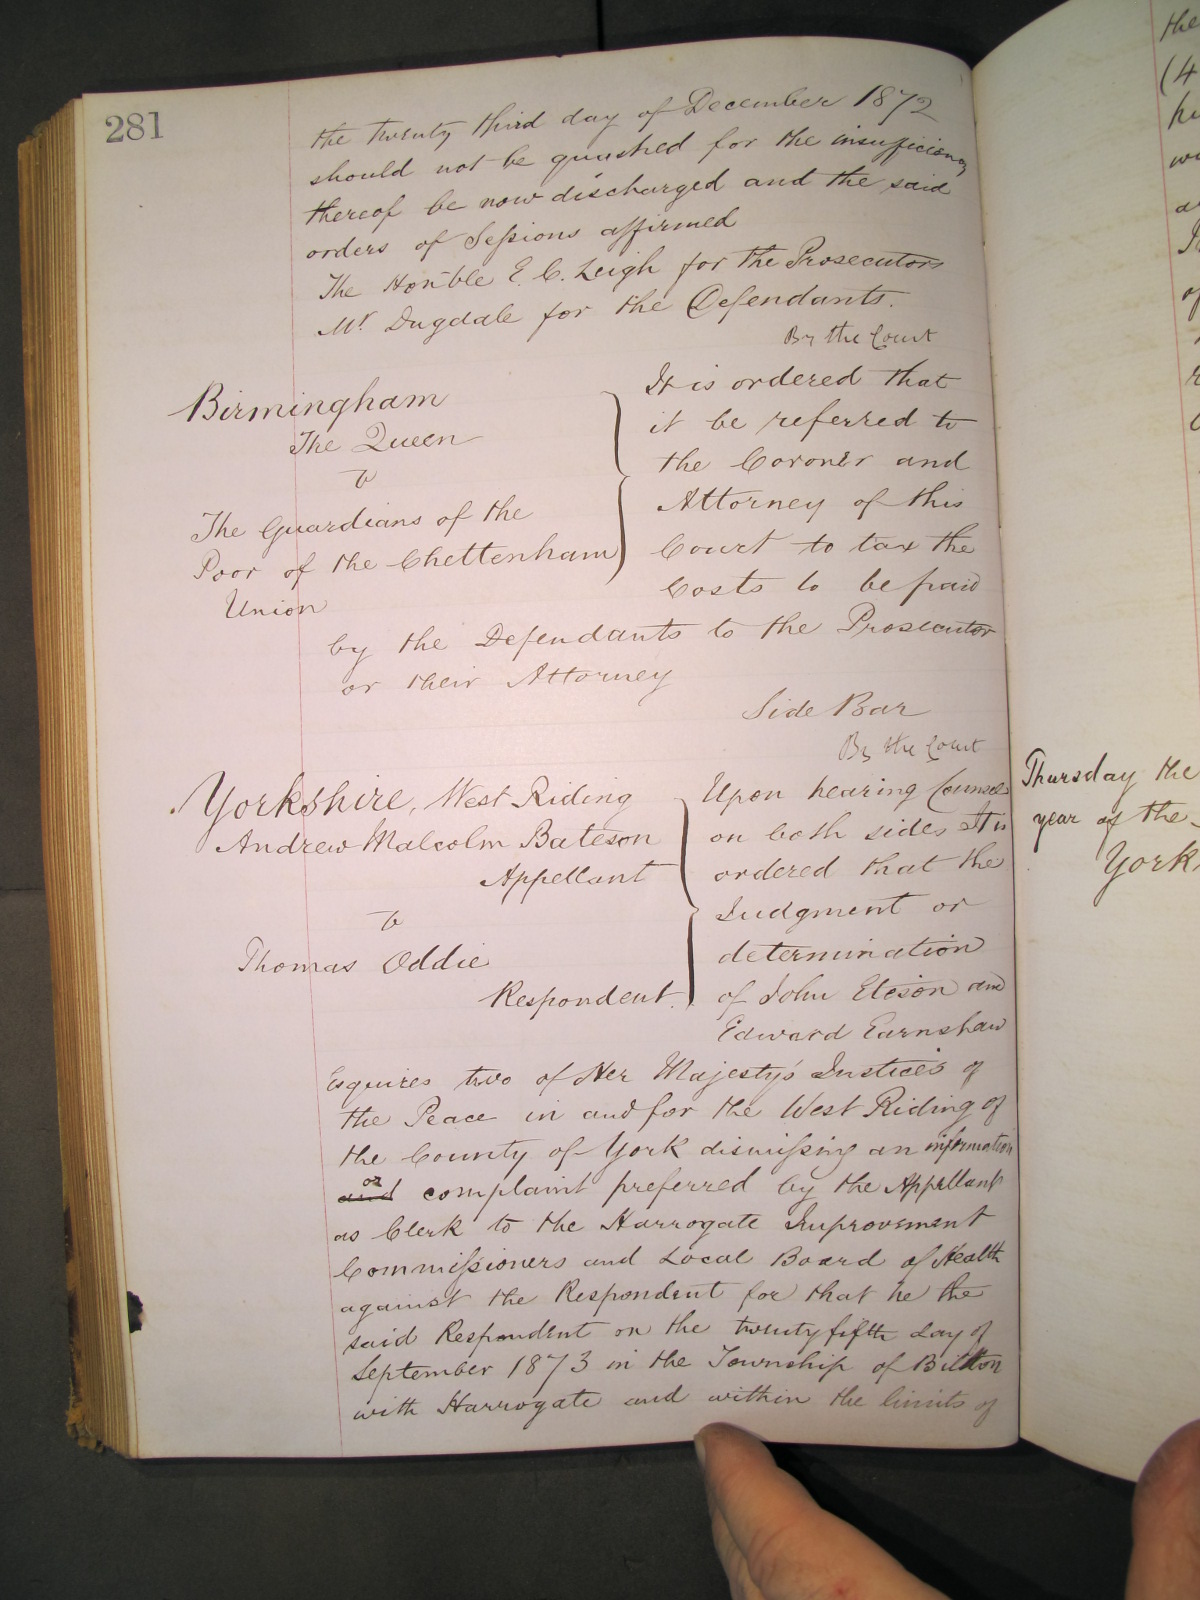 281
the twenty third day of December 1872
should not be quashed for the insufficiency
thereof be now discharged and the said
orders of Seſsions affirmed
The Honble E. C. Leigh for the Prosecutors
Mr Dugdale for the Defendants.
By the Court
Birmingham
The Queen
v
The Guardians of the
Poor of the Cheltenham
Union
It is ordered that
it be referred to
the Coroner and
Attorney of this
Court to tax the
Costs to be paid
by the Defendants to the Prosecutor
or their Attorney
Side Bar
By the Court
Yorkshire, West Riding
Andrew Malcolm Bateson
Appellant
v
Thomas Oddie
Respondent.
Upon hearing Counsel
on both sides It is
ordered that the
Judgment or
determination
of John Eteson and
Edward Earnshaw
Esquires two of Her Majesty's Justices of
the Peace in and for the West Riding of
the County of York dismiſsing an information
or
and complaint preferred by the Appellant
as Clerk to the Harrogate Improvement
Commiſsioners and Local Board of Health
against the Respondent for that he the
said Respondent on the twenty fifth day of
September 1873 in the Township of Bilton
with Harrogate and within the limits of
the
(4
Thursday the
year of the
York